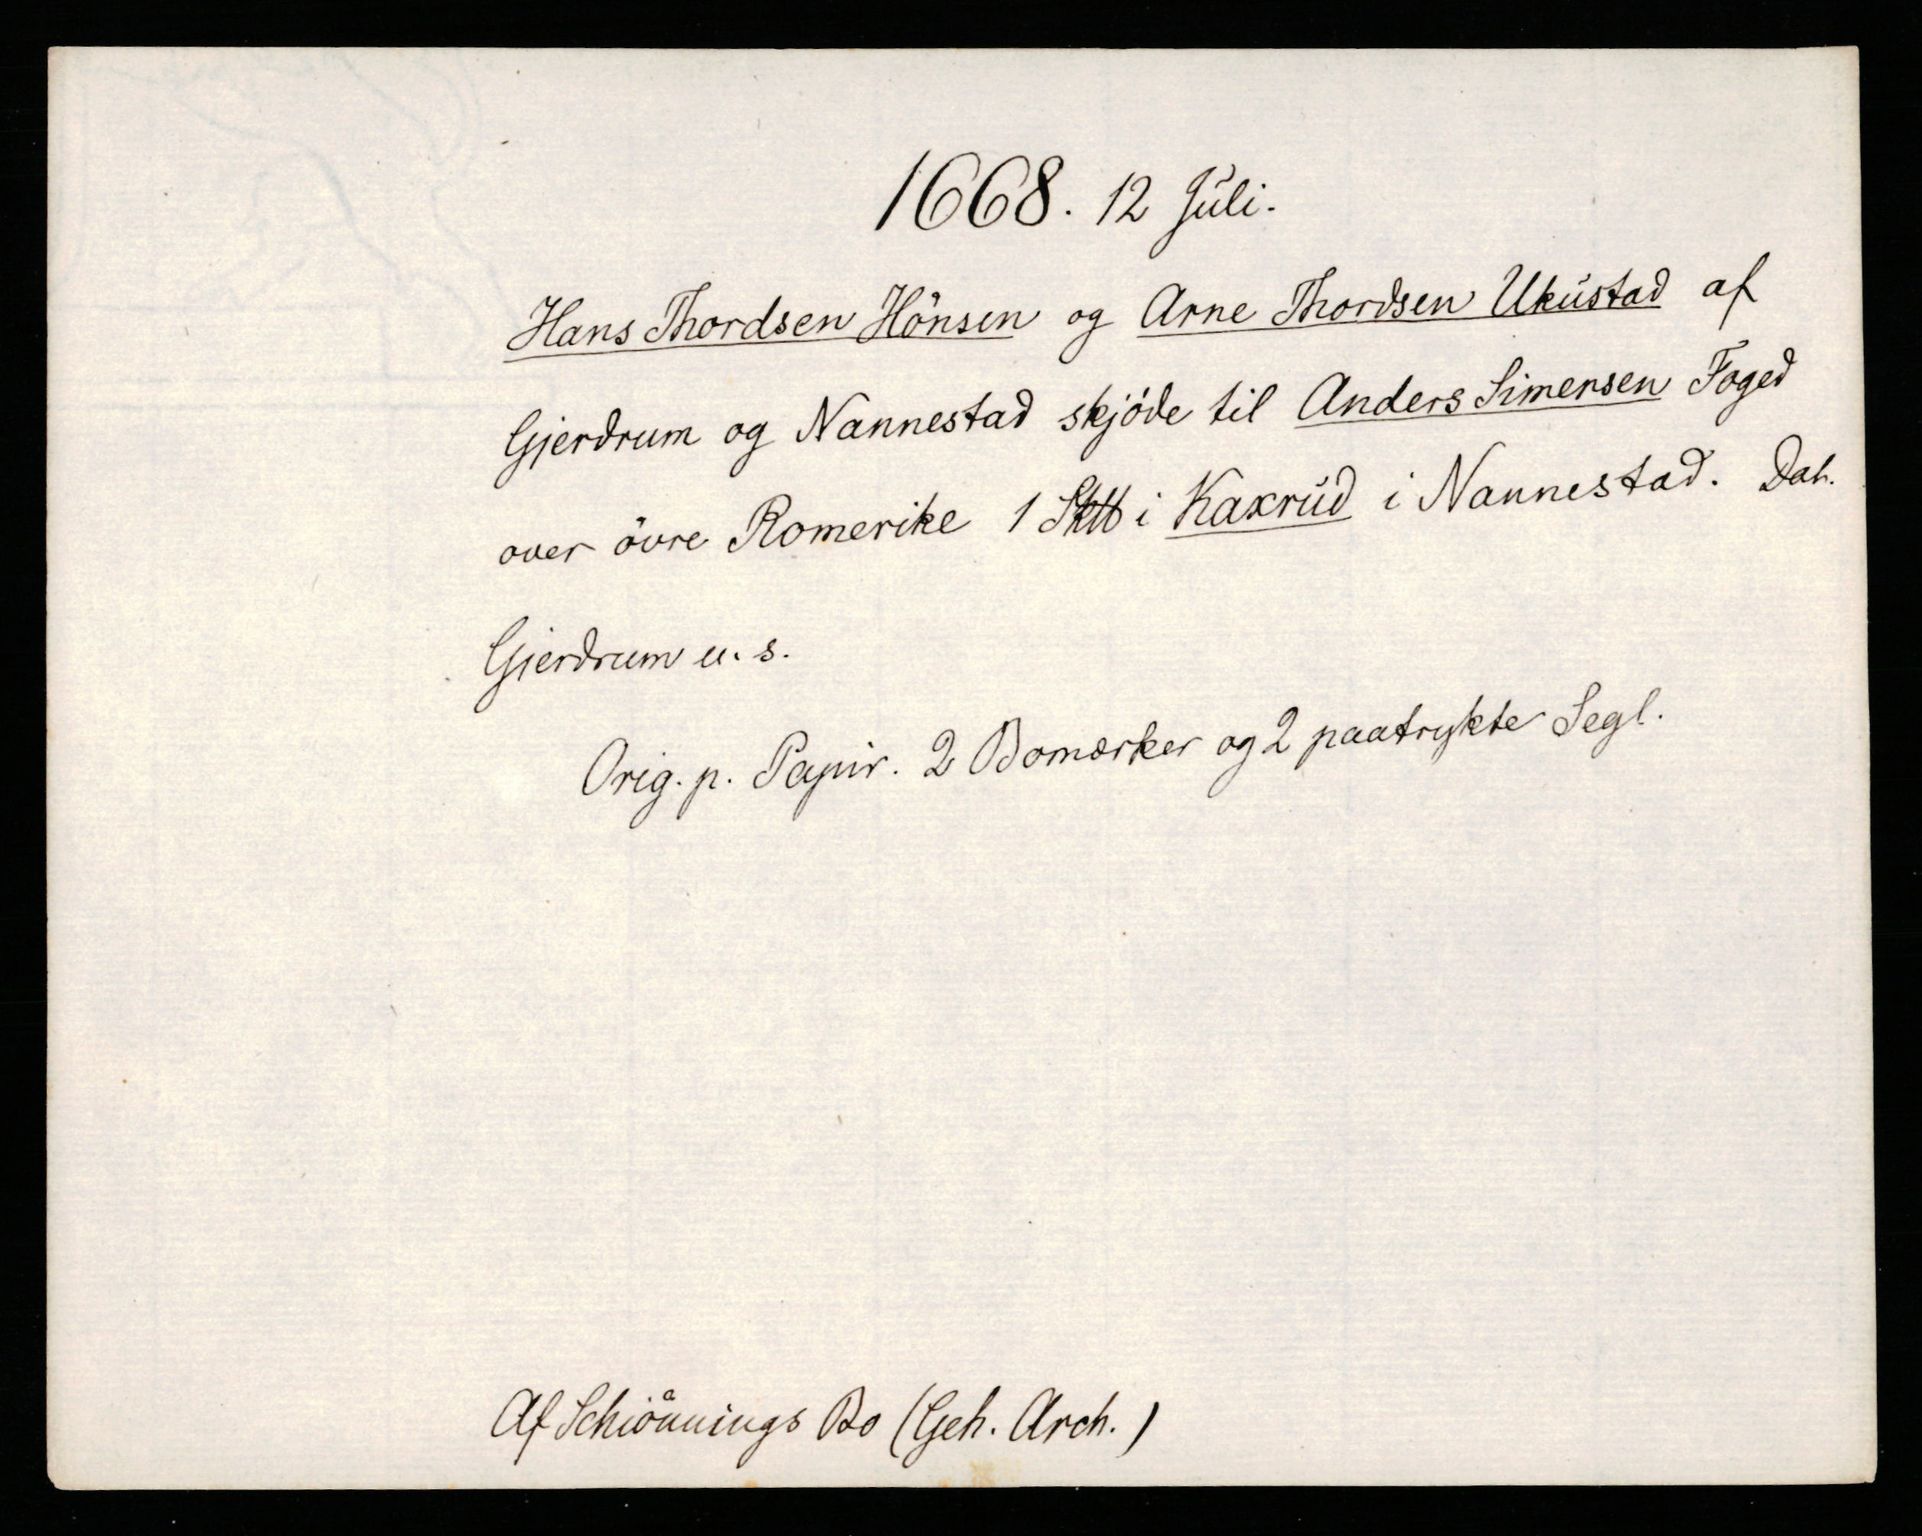 1668. 12 Juli.
Hans Thordsen Hönsen og Arne Thordsen Ukustad af
Gjerdrum og Nannestad skjöde til Anders Simensen Foged
over övre Romerike 1 i Kaxrud i Nannestad. Dat.
Gjerdrum u. s.
Orig. p. Papir. 2 Bomærker og 2 paatrykte Segl.
Af Schiönnings Bo (Geh. Arch.)